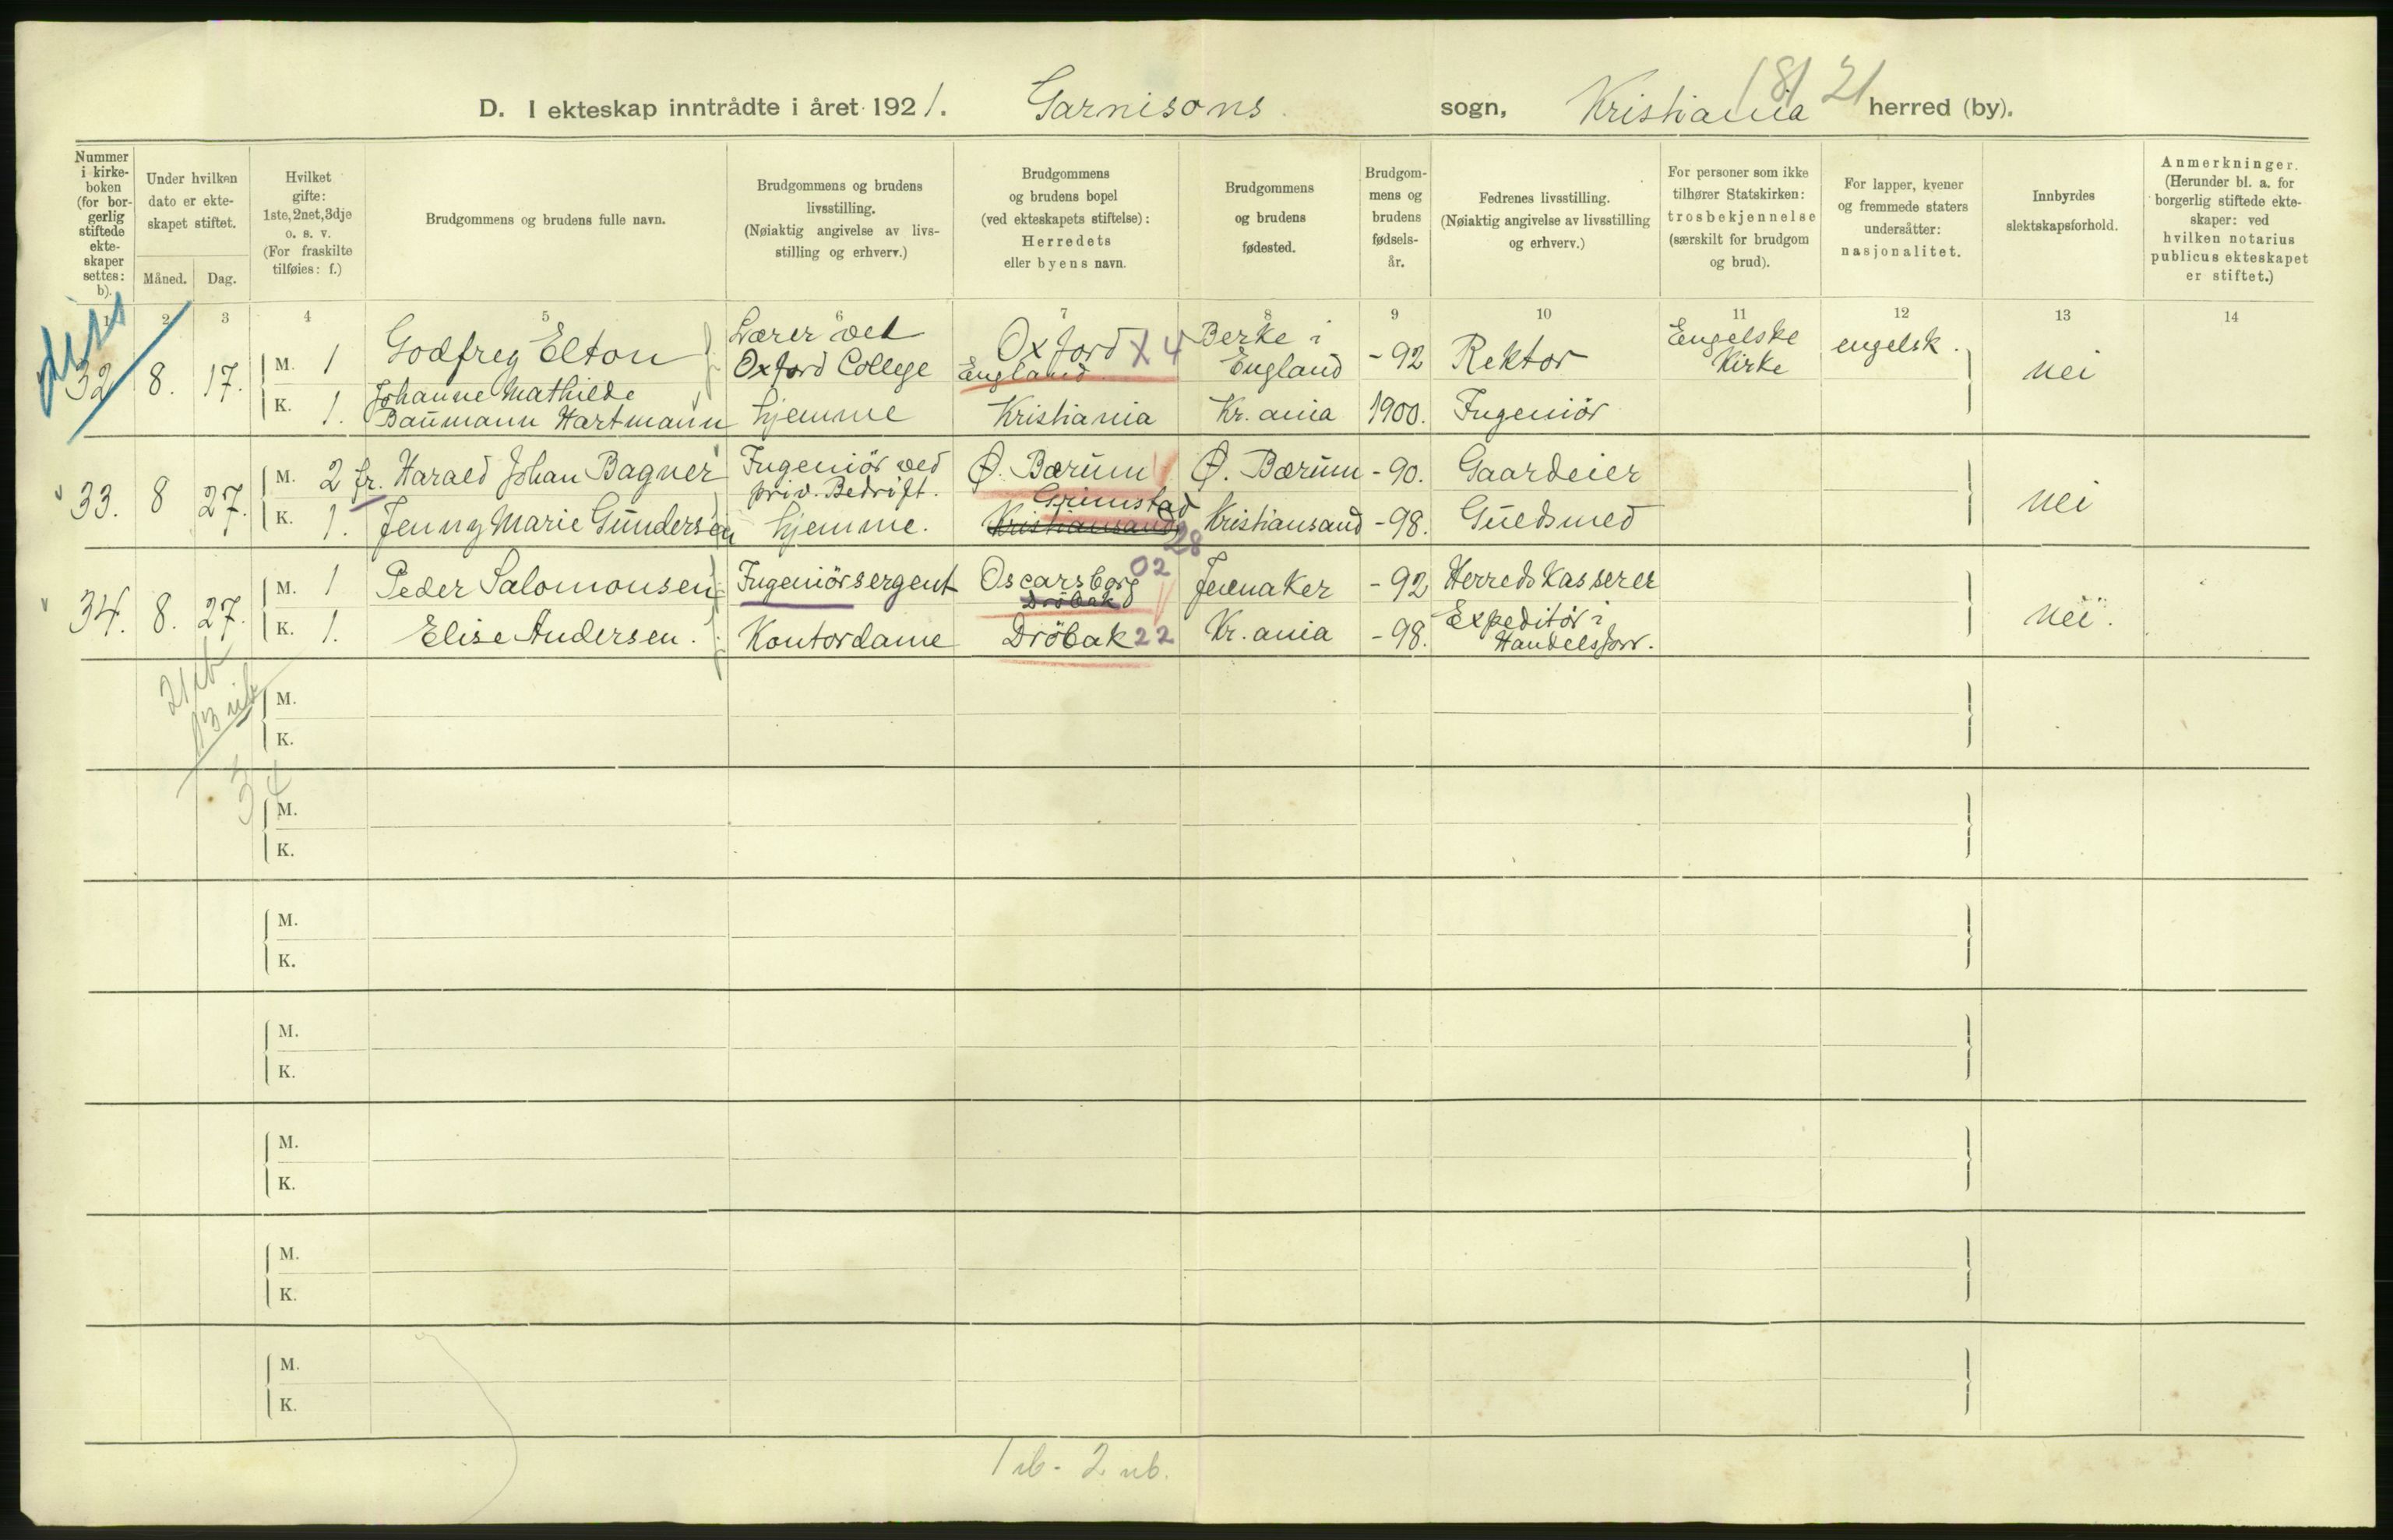 181 21
D. I ekteskap inntrådte i året 1921. Garnisons sogn, Kristiania herred (by).
Nummer
i kirke-
boken
(for bor-
gerlig
stiftede
ekte-
skaper
settes:
b).
Under hvilken
dato er ekte-
skapet stiftet.
Måned. Dag.
Hvilket
gifte:
1ste, 2net, 3dje
o. s. v.
(For fraskilte
tilføies: f.)
Brudgommens og brudens fulle navn.
Brudgommens og brudens
livsstilling.
(Nøiaktig angivelse av livs-
stilling og erhverv.)
Brudgommens
og brudens bopel
(ved ekteskapets stiftelse):
Herredets
eller byens navn.
Brudgommens
og brudens
fødested.
Brudgom-
mens og
brudens
fødsels-
år.
Fedrenes livsstilling.
(Nøiaktig angivelse av livsstilling
og erhverv.)
For personer som ikke
tilhører Statskirken:
trosbekjennelse
(særskilt for brudgom
og brud).
For lapper, kvener
og fremmede staters
undersåtter:
nasjonalitet.
Innbyrdes
slektskapsforhold.
Anmerkninger.
(Herunder bl. a. for
borgerlig stiftede ekte-
skaper: ved
hvilken notarius
publicus ekteskapet
er stiftet.)
1 2 3 4 5 6 7 8 9 10 11 12 13 14
32 8. 17.
M. 1 Godfrey Elton Lærer ved
Oxford College Oxford X 4
England Berke i
England -92 Rektor Engelske
Kirke engelsk. nei
K. 1. Johanne Mathilde
Baumann Hartmann hjemme Kristiania Kr.ania 1900. Ingeniör
33. 8 27.
M. 2 fr. Harald Johan Bagner Ingeniör ved
priv. Bedrift. Ø. Bærum Ø. Bærum -90. Gaardeier nei
K. 1. Jenny Marie Gundersen hjemme. Grimstad
Kristiansand 28 Kristiansand -98. Guldsmed
34. 8. 27.
M. 1 Peder Salomonsen Ingeniörsergent Oscarsborg 02
Dröbak Jevnaker -92 Herredskasserer nei.
K. 1. Elise Andersen. Kontordame Dröbak 22 Kr.ania -98. Expeditör i
Handelsforr.
M.
K.
M.
K.
M.
K.
M.
K.
M.
K.
M.
K.
M.
K.
1 ib - 2 ub.